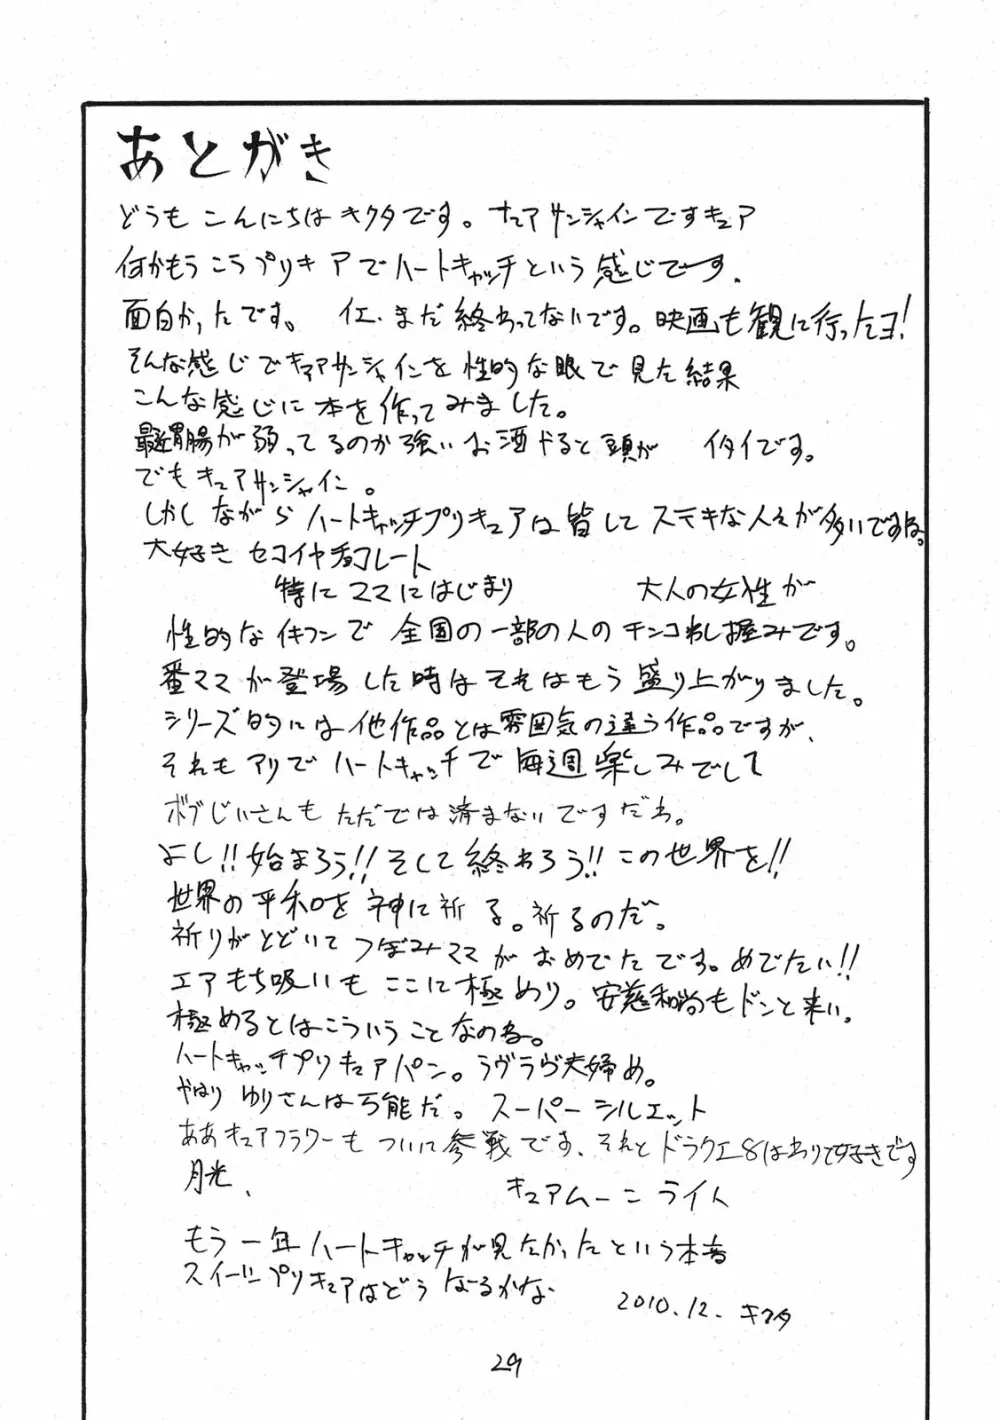 あとがき
どうもこんにちはキクタです。キュアサンシャインですキュア
何かもうこうプリキアでハートキャッチという感じです。
面白かったです。 イエ、まだ終わってないです。映画も観に行ったヨ!
そんな感じでキュアサンシャインを性的な眼で見た結果
こんな感じに本を作ってみました。
最近胃腸が弱ってるのか強いお酒やると頭が イタイです。
でもキュアサンシャイン。
しかしながらハートキャッチプリキュアは皆してステキな人々が多いですね。
大好きセコイヤチョコレート
特にママにはじまり 大人の女性が
性的なイキフンで全国の一部の人のチンコわし掴みです。
番ママが登場した時はそれはもう盛り上がりました。
シリーズ的には他作品とは雰囲気の違う作品ですが、
それもアリでハートキャッチで毎週楽しみでして
ボブじいさんもただでは済まないですだわ。
よし!!始まろう!!そして終わろう!!この世界を!!
世界の平和を神に祈る。祈るのだ。
祈りがとどいてつぼみママがおめでたです。めでたい!!
エアもち吸いもここに極めり。安慈和尚もドンと来い。
極めるとはこういうことなのね。
ハートキャッチプリキュアパン。ラヴラヴ夫婦め。
やはりゆりさんは万能だ。スーパーシルエット
ああキュアフラワーもついに参戦です。それとドラクエ8はわりと好きです
月光、 キュアムーンライト
もう一年ハートキャッチが見たかったという本音
スイーツプリキュアはどうなるかな
2010.12. キクタ
29